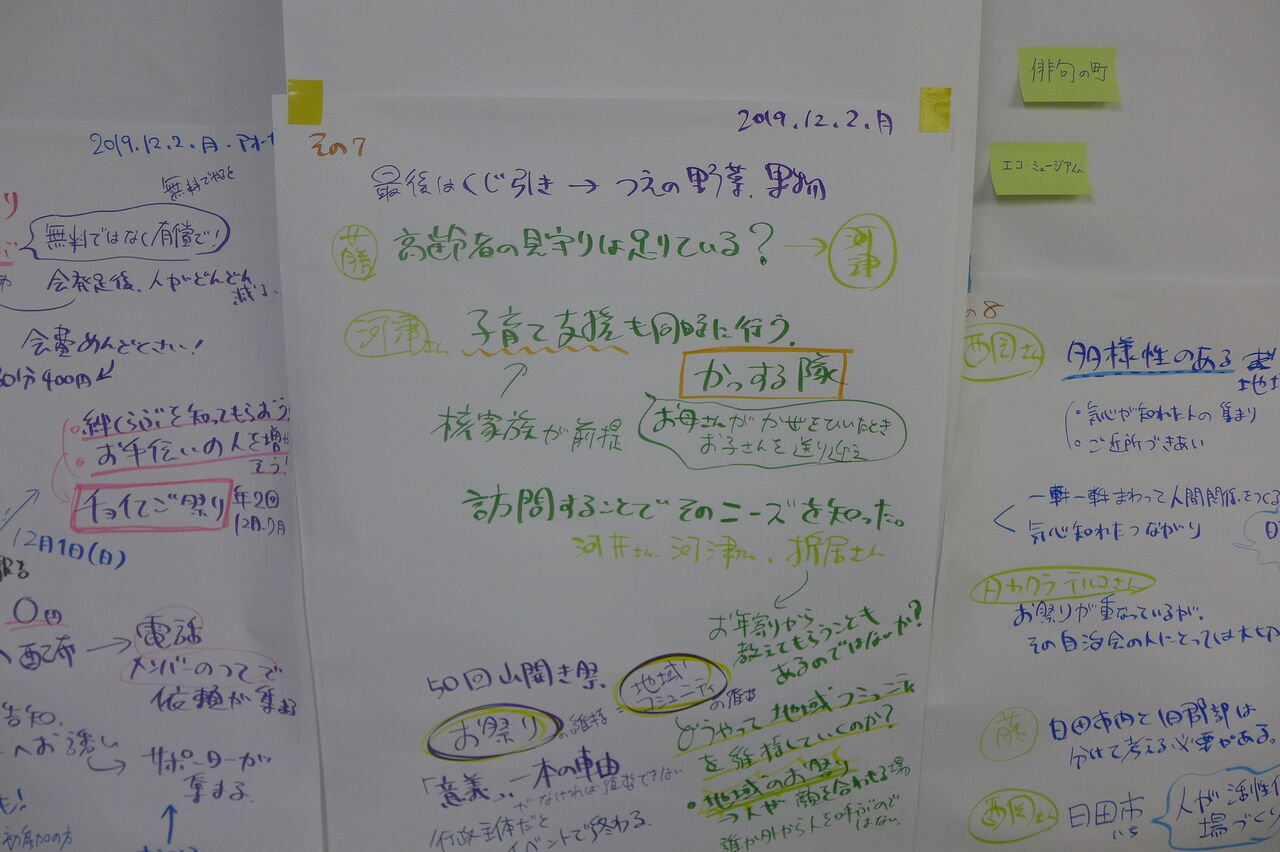 2019.12.2.月.
無料でやると
無料ではなく有償で!
会発足後、人がどんどん
減る
会費めんどくさい!
30分400円
絆くらぶを知ってもらおう
お手伝いの人を増や
そう!
チョイてご祭り
年2回
12月.7月
12月1日(日)
0円
配布
電話
メンバーのってで
依頼が集まる
告知.
へお誘い
サポーターが
集まる
初参加の方
2019.12.2.月
その7
最後はくじ引き → つえの野菜、果物
藤
高齢者の見守りは足りている? →
河津
河津さん
子育て支援も同時に行う.
かっする隊
核家族が前提
お母さんがかぜをひいたとき
お子さんを送り迎え
訪問することでそのニーズを知った。
河井さん、河津さん、折居さん
お年寄りから
教えてもらうことも
あるのではないか?
50回山開き祭.
お祭り
の維持
=
地域
コミュニティ
の維持
「意義」、一本の車由
がなければ維持できない
行政主体だと
イベントで終わる.
どうやって地域コミュニティ
を維持していくのか?
・地域のお祭り
人が顔を合わせる場
誰か外から人を呼ぶので
はない.
俳句の町
エコ・ミュージアム
の8
西岡さん
多様性のある
地域
・気心が知れた人の集まり
・ご近所づきあい
一軒一軒まわって人間関係をつくる
気心知れたつながり
お祭りが重なっているが、
その自治会の人にとっては大切
藤
日田市内と旧郡部は
分けて考える必要がある。
西岡さん
日田市
人が活性化
場づくり